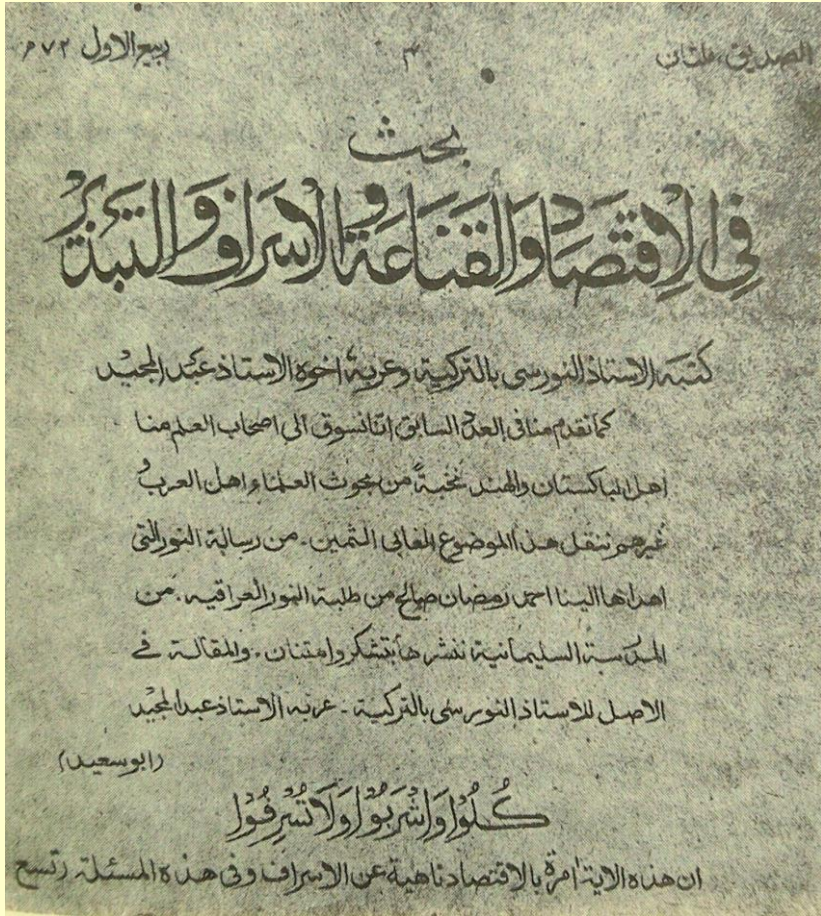 الصديق، ملتان ٣ ربيع الاول ٧٢ م
بحث
فِي الْاِقْتَصَادِ وَالْقَنَاعَةِ وَالْاِسْرَافِ وَالتَّبْذِيْرِ
كتبه الاستاذ النورسى بالتركية وعربه اخوه الاستاذ عبد المجيد
كما تقدم منا فى العدد السابق اننا نسوق الى اصحاب العلم منا
اهل الباكستان والهند نخبةً من بحوث العلماء اهل العرب و
غيرهم ننقل هذا الموضوع الغالى الثمين۔ من رسالة النور التى
اهداها الينا احمد رمضان صالح من طلبة النور العراقيه۔ من
المدرسة السليمانية ننشرها بتشكر وامتنان۔ والمقالة فے
الاصل للاستاذ النورسى بالتركية۔ عربه الاستاذ عبد المجيد
(ابو سعيد)
كُلُوْا وَاشْرَبُوْا وَلَا تُسْرِفُوْا
ان هذه الاية امرة بالاقتصاد ناهية عن الاسراف وفى هذه المسئلة (تسع